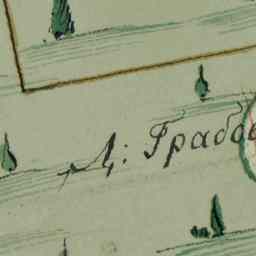 Д: Грабо